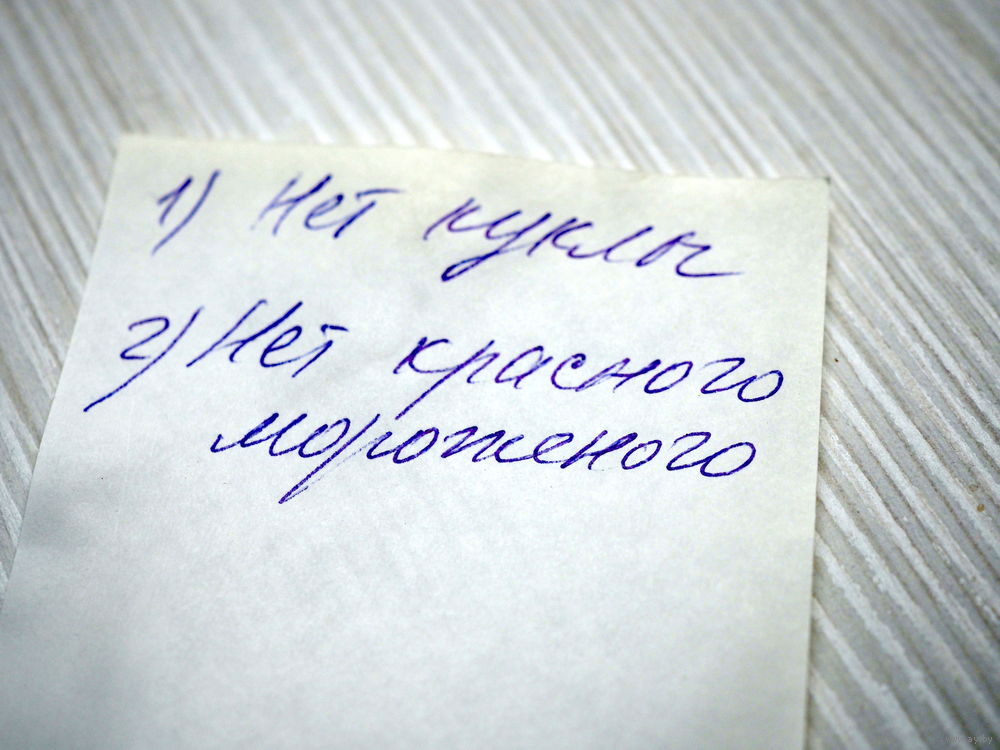 1) Нет куклы
2) Нет красного
мороженого